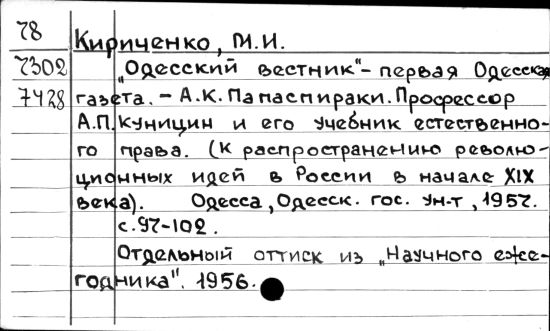 78
Кириченко, М.И.
7302
„Одесский вестник"- первая Одесская
7428
газета. – А.К. Папаспираки. Профессор
А.П. Куницин и его учебник естественно-
го права. (к распространению револю-
ционных идей в России в начале XIX
века). Одесса, Одесск. гос. ун-т, 1957.
с. 97-102.
Отдельный оттиск из „Научного еже-
годника". 1956.